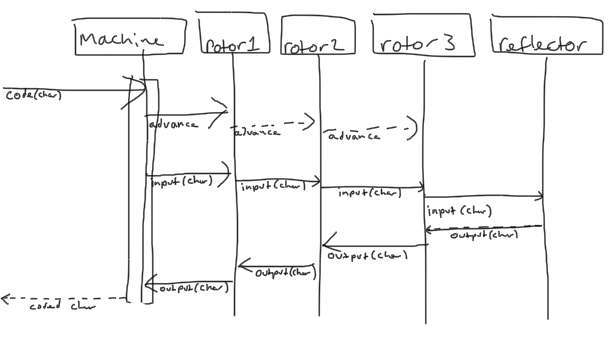 Machine
rotor1
rotor2
rotor3
reflector
code(char)
advance
advance
advance
input(char)
input(char)
input(char)
input(char)
output(char)
output(char)
output(char)
output(char)
coded char